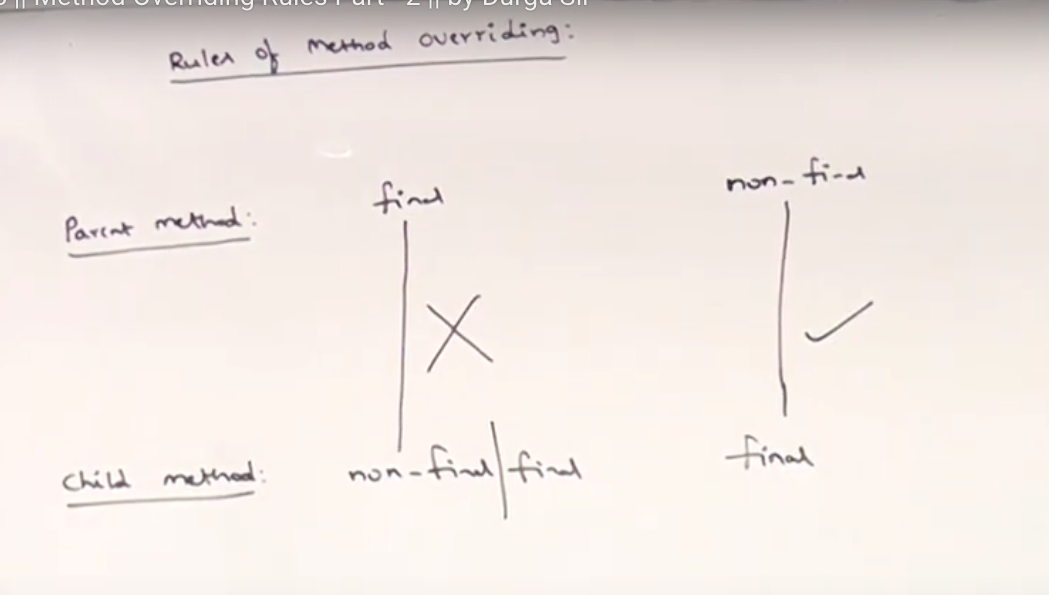 || Method Overriding Rules Part - 2 || by Durga Sir
Rules of Method overriding:
final
non-final
Parent method:
Child method:
non-final | final
final